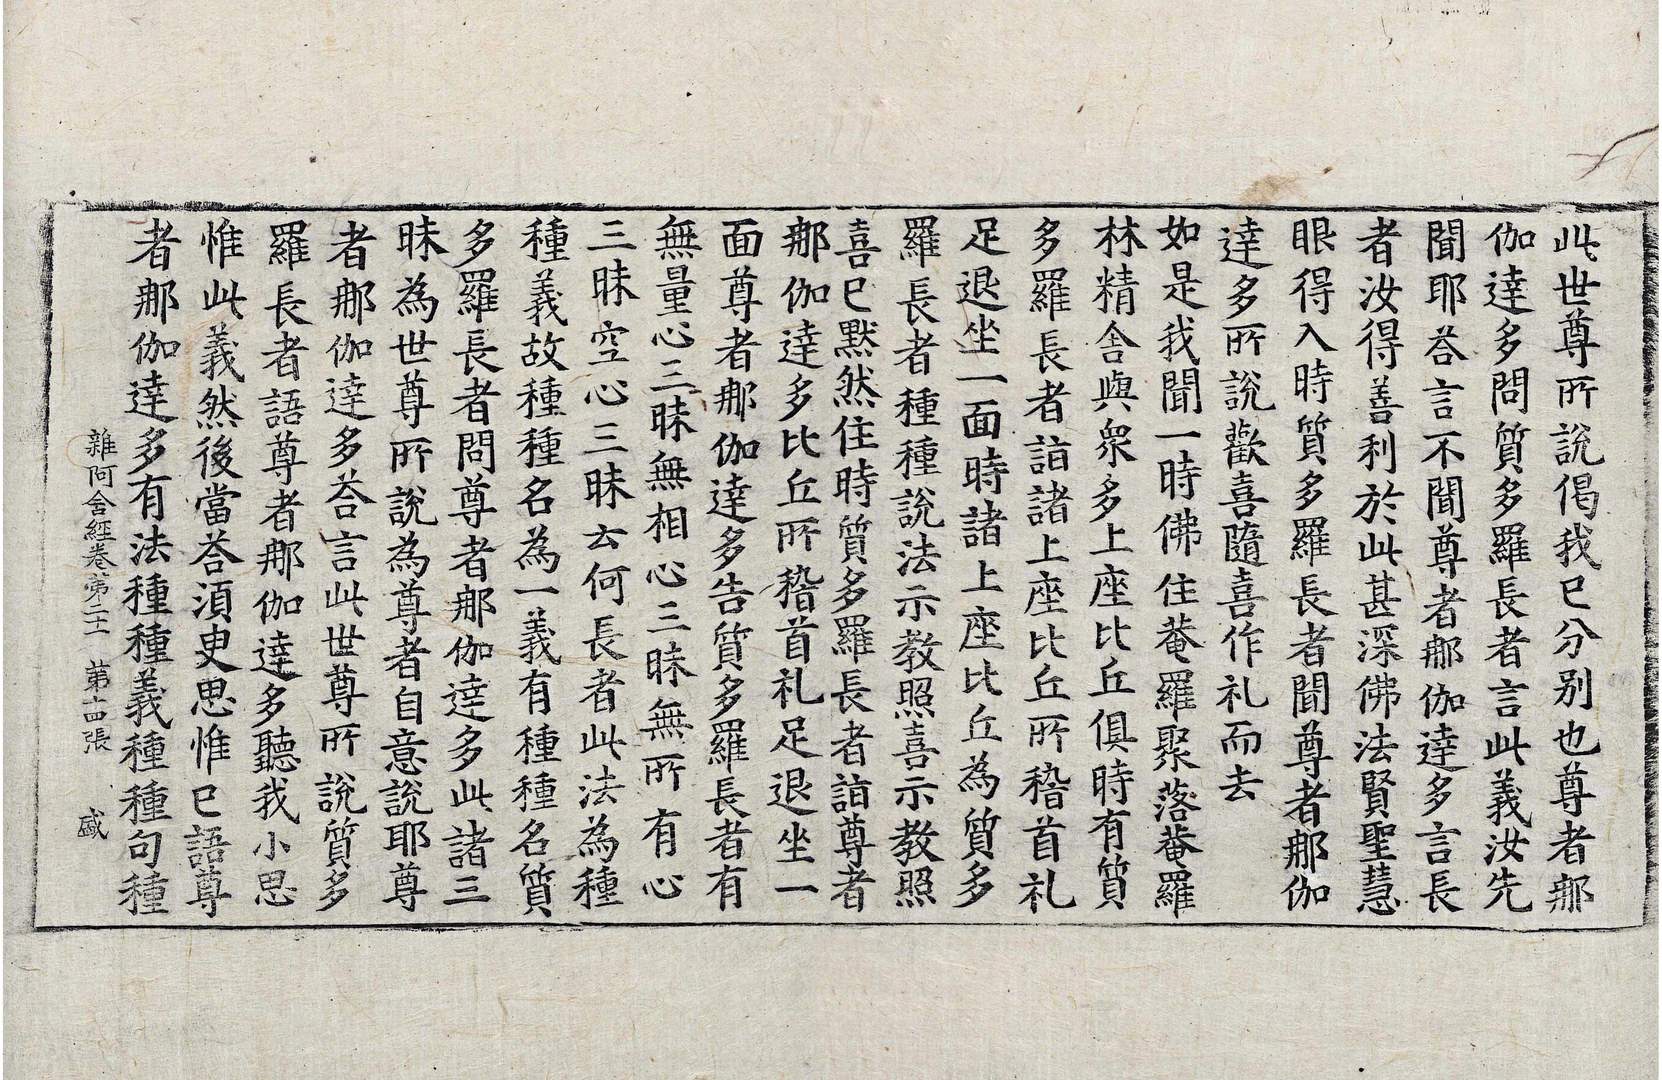 此世尊所說偈我已分別也尊者那
伽達多問質多羅長者言此義汝先
聞耶荅言不聞尊者那伽達多言長
者汝得善利於此甚深佛法賢聖慧
眼得入時質多羅長者聞尊者那伽
達多所說歡喜隨喜作礼而去
如是我聞一時佛住菴羅聚落菴羅
林精舍與衆多上座比丘俱時有質
多羅長者詣諸上座比丘所稽首礼
足退坐一面時諸上座比丘為質多
羅長者種種說法示教照喜示教照
喜已默然住時質多羅長者詣尊者
那伽達多比丘所稽首礼足退坐一
面尊者那伽達多告質多羅長者有
無量心三昧無相心三昧無所有心
三昧空心三昧云何長者此法為種
種義故種種名為一義有種種名質
多羅長者問尊者那伽達多此諸三
昧為世尊所說為尊者自意說耶尊
者那伽達多荅言此世尊所說質多
羅長者語尊者那伽達多聽我小思
惟此義然後當荅須臾思惟已語尊
者那伽達多有法種種義種種句種
雜阿含經卷第二十一 第十四張 盛